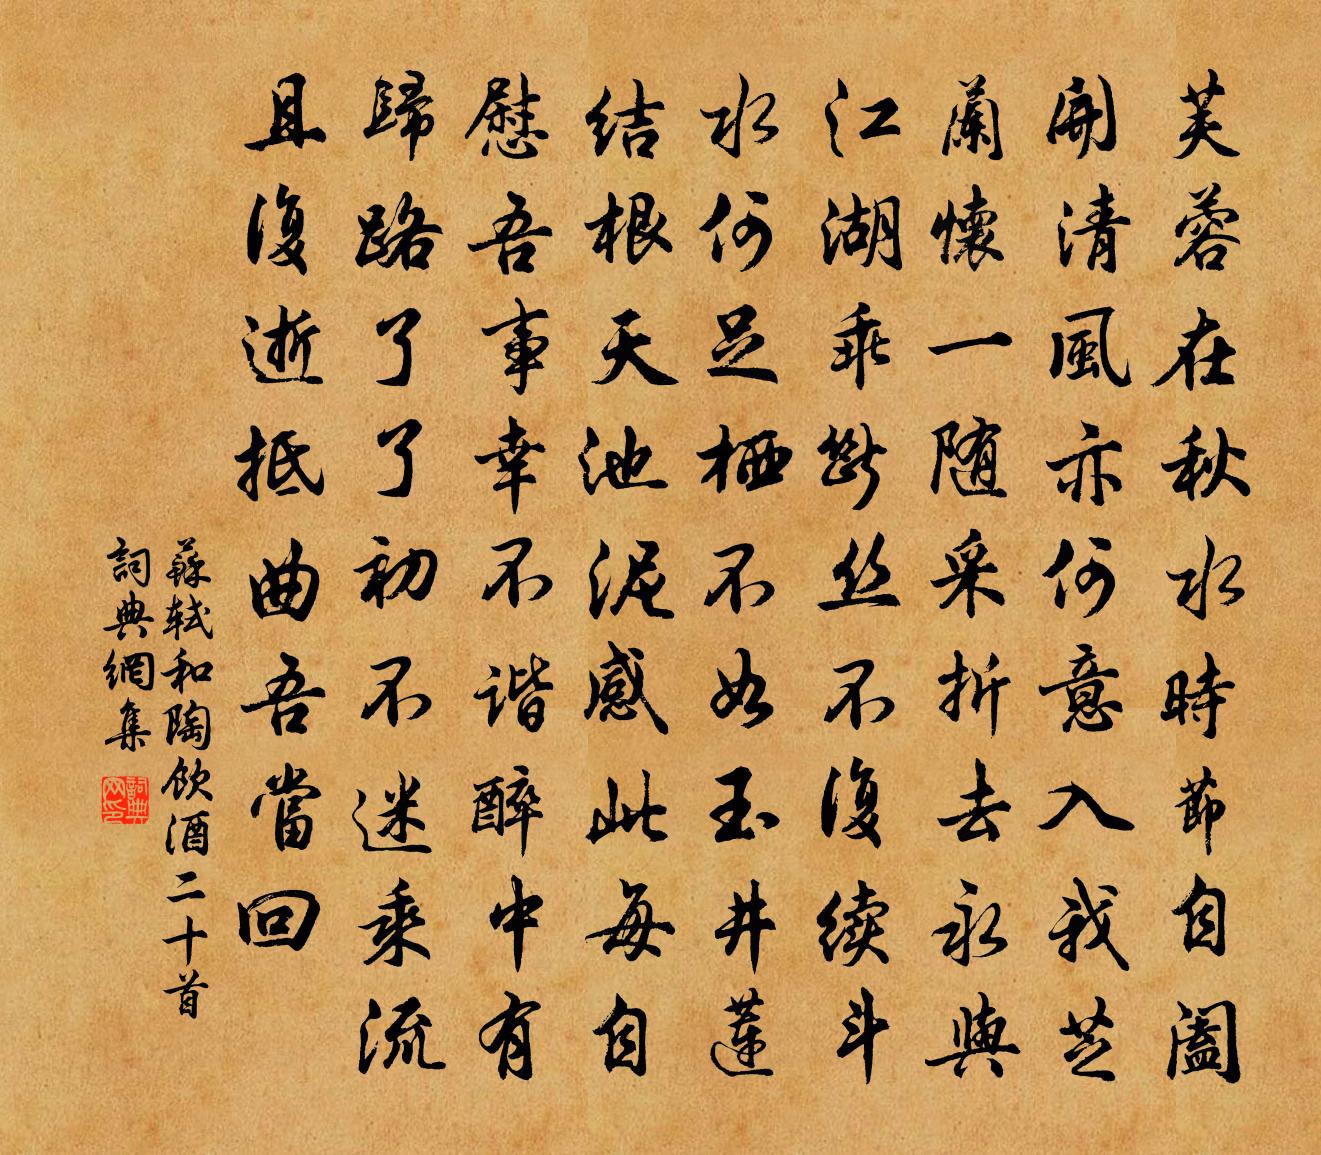 芙蓉在秋水時節自闔
開清風亦何意入我芝
蘭懷一随采折去永與
江湖乖斷丝不復續斗
水何足栖不如玉井蓮
结根天池泥感此每自
慰吾事幸不谐醉中有
歸路了了初不迷乘流
且復逝抵曲吾當回
蘇轼和陶飲酒二十首
詞典網集
詞典网印